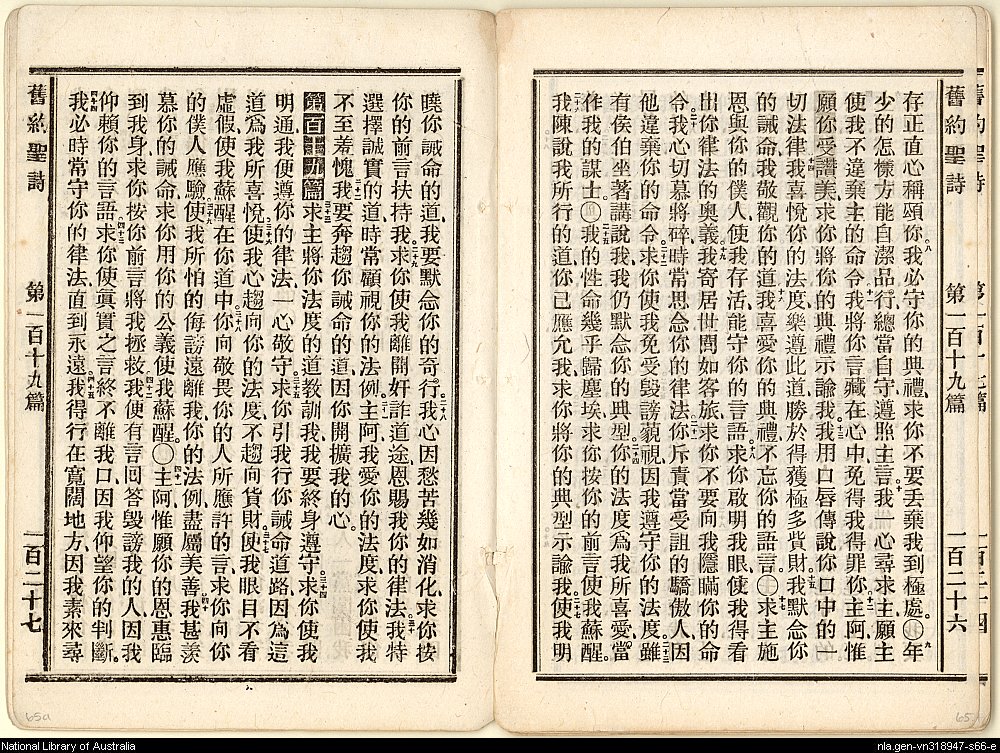 舊約聖詩 第一百十九篇 一百二十六
存正直心稱頌你八我必守你的典禮求你不要丟棄我到極處九年
少的怎樣方能自潔品行總當自守遵照主言十我一心尋求主願主
使我不違棄主的命令十一我將你言藏在心中免得我得罪你十二主阿惟
願你受讚美求你將你的典禮示諭我十三我用口唇傳說你口中的一
切法律十四我喜悅你的法度樂遵此道勝於得獲極多貲財十五我默念你
的誡命我敬觀你的道十六我喜愛你的典禮不忘你的語言十七求主施
恩與你的僕人使我存活能守你的言語十八求你啟明我眼使我得看
出你律法的奧義十九我寄居世間如客旅求你不要向我隱瞞你的命
令二十我心切慕將碎時常思念你的律法二十一你斥責當受詛的驕傲人因
他違棄你的命令二十二求你使我免受毀謗藐視因我遵守你的法度二十三雖
有侯伯坐著講說我我仍默念你的典型二十四你的法度為我所喜愛當
作我的謀士二十五我的性命幾乎歸塵埃求你按你的前言使我蘇醒
二十六我陳說我所行的道你已應允我求你將你的典型示諭我二十七使我明
曉你誡命的道我要默念你的奇行二十八我心因愁苦幾如消化求你按
你的前言扶持我二十九求你使我離開奸詐道途恩賜我你的律法三十我特
選擇誠實的道時常顧視你的法例三十一主阿我愛你的法度求你使我
不至羞愧三十二我要奔趨你誡命的道因你開擴我的心
第百十九篇三十三求主將你法度的道教訓我我要終身遵守三十四求你使我
明通我便遵你的律法一心敬守三十五求你引我行你誡命道路因為這
道為我所喜悅三十六使我心趨向你的法度不趨向貨財三十七使我眼目不看
虛假使我蘇醒在你道中三十八你向敬畏你的人所應許的言求你向你
的僕人應驗三十九使我所怕的侮謗遠離我你的法例盡屬美善四十我甚羨
慕你的誡命求你用你的公義使我蘇醒四十一主阿惟願你的恩惠臨
到我身求你按你前言將我拯救四十二我便有言囘答毀謗我的人因我
仰賴你的言語四十三求你使眞實之言終不離我口因我仰望你的判斷
四十四我必時常守你的律法直到永遠四十五我得行在寬闊地方因我素來尋
舊約聖詩 第一百十九篇 一百二十七
65a
65
National Library of Australia
nla.gen-vn318947-s66-e